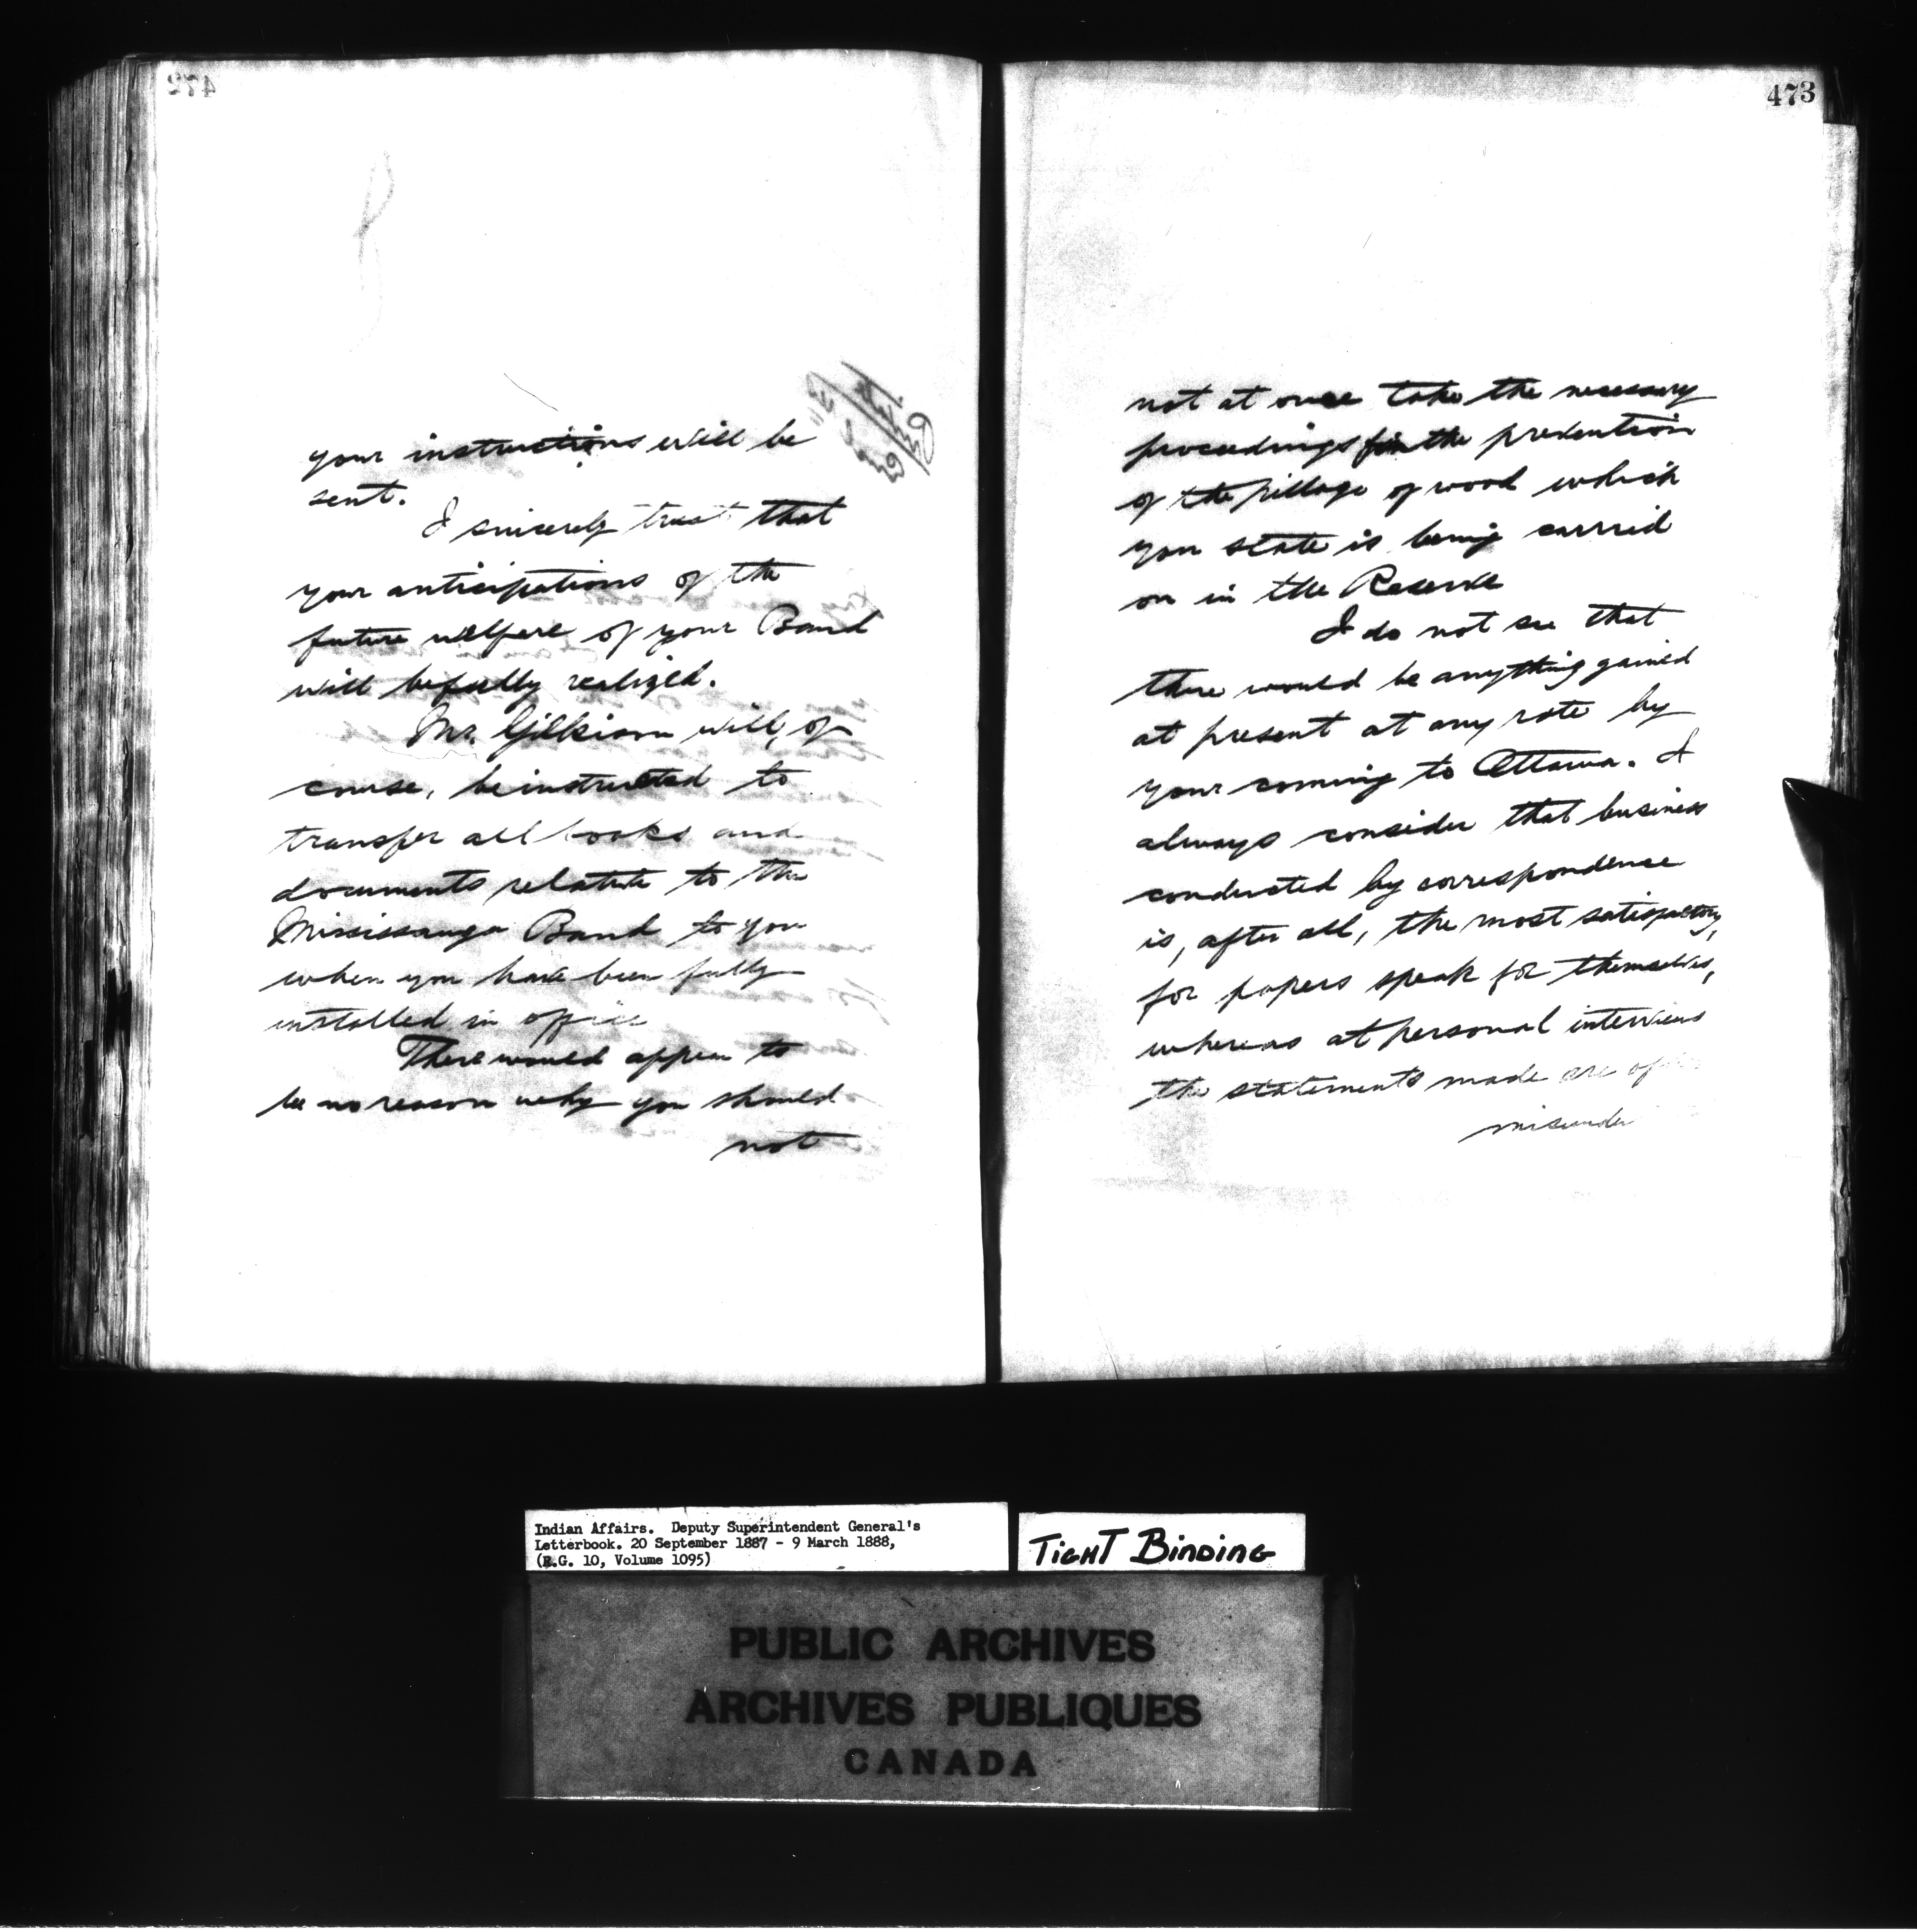 472
your instructions will be
sent.
I sincerely trust that
your anticipations of the
future welfare of your Band
will be fully realized.
Mr. Gilkison will, of
course, be instructed to
transfer all books and
documents relative to the
Mississauga Band to you
when you have been fully
installed in office
There would appear to
be no reason why you should
not
473
not at once take the necessary
proceedings for the prevention
of the pillage of wood which
you state is being carried
on in the Reserve
I do not see that
there would be anything gained
at present at any rate by
your coming to Ottawa. I
always consider that business
conducted by correspondence
is, after all, the most satisfactory,
for papers speak for themselves,
whereas at personal interviews
the statements made are often
misunder
Indian Affairs. Deputy Superintendent General's
Letterbook. 20 September 1887 - 9 March 1888,
(R.G. 10, Volume 1095)
TIGHT BINDING
PUBLIC ARCHIVES
ARCHIVES PUBLIQUES
CANADA